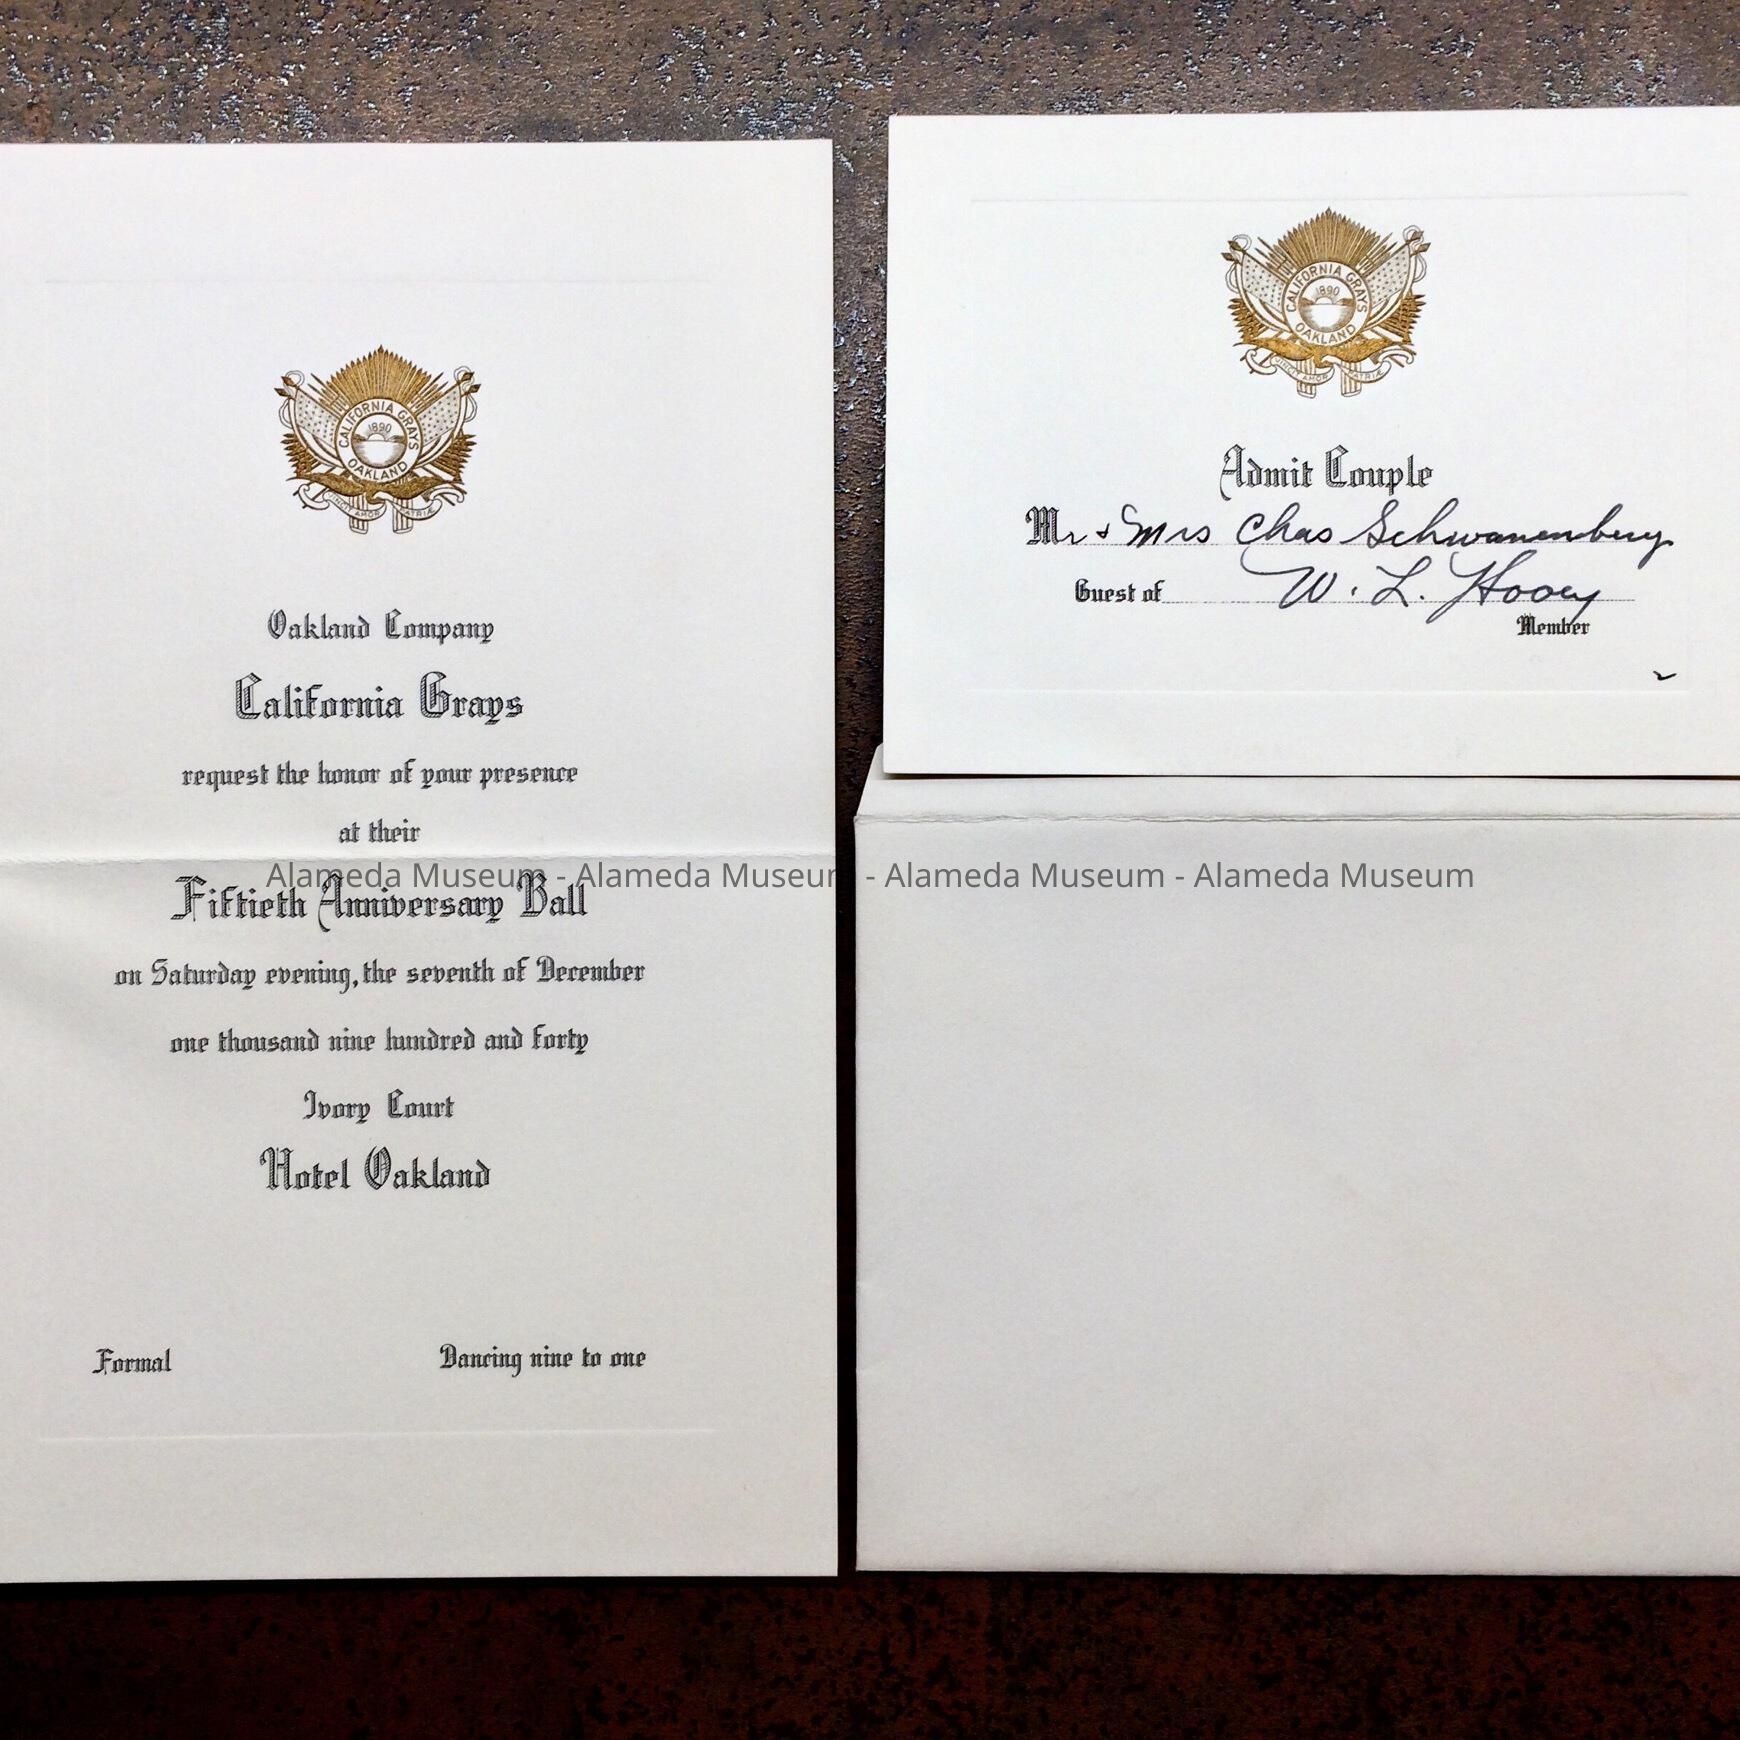 CALIFORNIA GRAYS
1890
OAKLAND
Oakland Company
California Grays
request the honor of your presence
at their
Fiftieth Anniversary Ball
on Saturday evening, the seventh of December
one thousand nine hundred and forty
Ivory Court
Hotel Oakland
Formal
Dancing nine to one
CALIFORNIA GRAYS
1890
OAKLAND
Admit Couple
Mr & Mrs Chas Schwanenberg
Guest of W. L. Hooey
Member
Alameda Museum - Alameda Museum - Alameda Museum - Alameda Museum